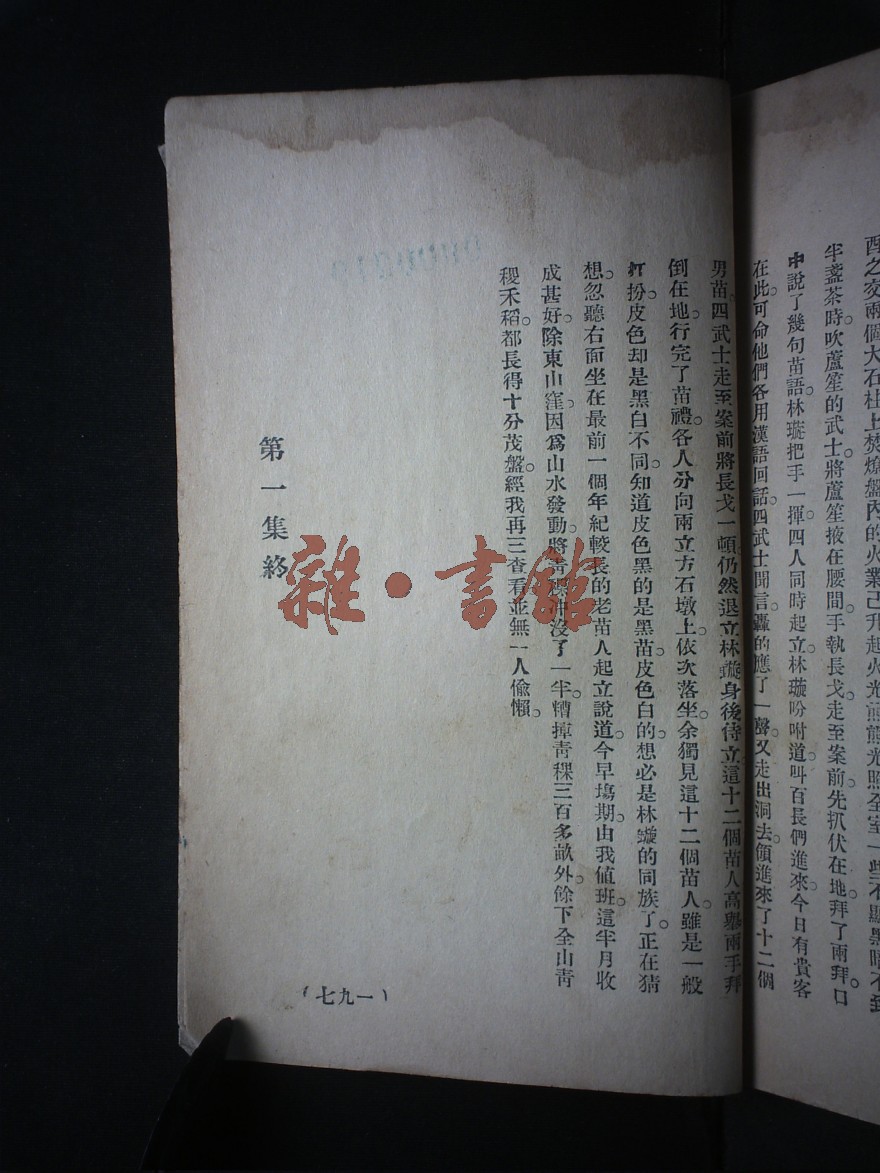 酉之交兩個大石柱上焚燎盤內的火業已升起火光熊熊光照全室一些不顯黑暗不到
半盞茶時。吹蘆笙的武士。將蘆笙掖在腰間。手執長戈。走至案前。先扒伏在地。拜了兩拜。口
中說了幾句苗語。林璇把手一揮。四人同時起立。林璇吩咐道。叫百長們進來。今日有貴客
在此。可命他們各用漢語回話。四武士聞言。轟的應了一聲。又走出洞去。領進來了十二個
男苗。四武士走至案前。將長戈一頓。仍然退立林璇身後侍立。這十二個苗人。高舉兩手。拜
倒在地。行完了苗禮。各人分向兩立方石墩上。依次落坐。余獨見這十二個苗人。雖是一般
打扮。皮色却是黑白不同。知道皮色黑的是黑苗。皮色白的。想必是林璇的同族了。正在猜
想。忽聽右面坐在最前一個年紀較長的老苗人。起立說道。今早塲期。由我値班。這半月收
成甚好。除東山窪。因爲山水發動。將青稞冲沒了一半。糟掉青稞三百多畝外。餘下全山青
稷禾稻。都長得十分茂盤。經我再三查看。並無一人偷懶。
第一集終
(一九七)
雜·書館